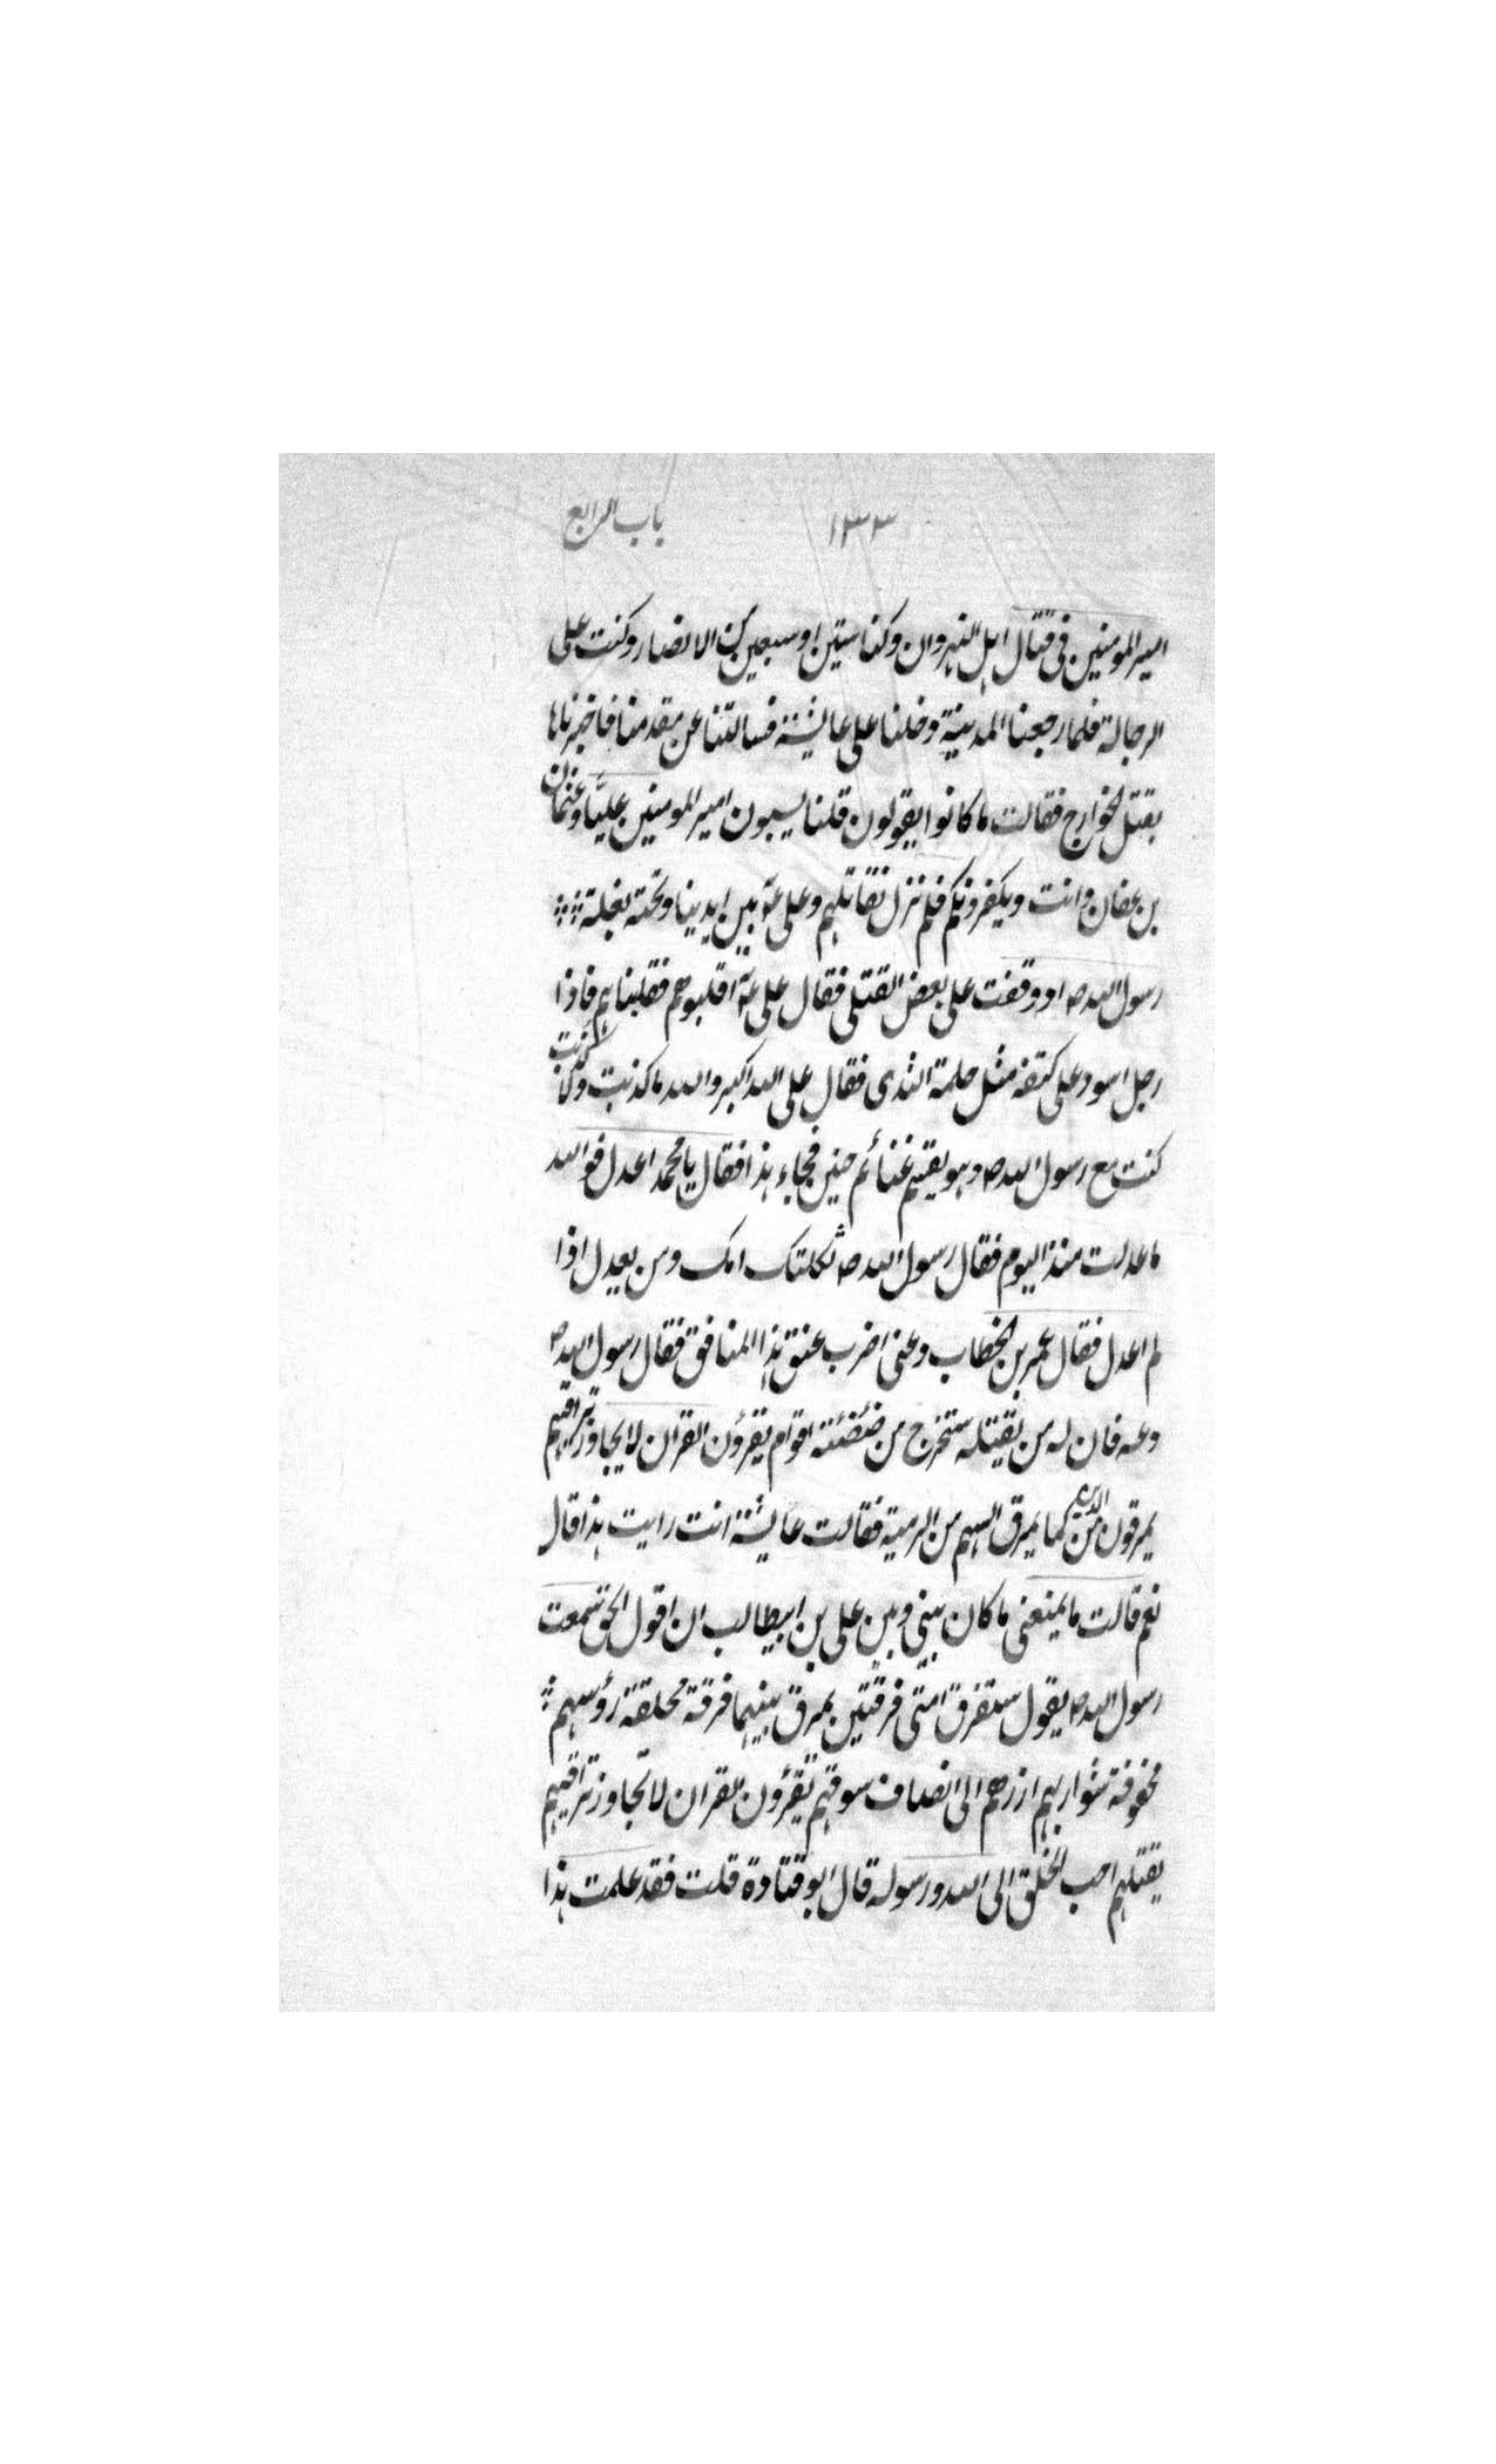 ۱۳۳ باب الرابع
امیر المومنین فی قتال اہل النہروان وکنا ستین او سبعین من الانصار وکنت علی
الرجالة فلما رجعنا المدینة دخلنا علی عایشة فسالتنا عن مقدمنا فاخبرناہا
بقتل الخوارج فقالت ما کانوا یقولون قلنا یسبون امیر المومنین علیّاً وعثمان
بن عفان وانت ویکفرونکم فلم نزل نقاتلہم وعلی ع بین ایدینا وتحته بغلة
رسول الله ص او وقفت علی بعض القتلی فقال علی ع اقلبوهم فقلبناہم فاذا
رجل اسود علی کتفه مثل حلمة الثدی فقال علی الله اکبر والله ما کذبت ولا کذبت
کنت مع رسول الله ص وہو یقسم غنائم حنین فجاء ہذا فقال یا محمد اعدل فوالله
ما عدلت منذ الیوم فقال رسول الله ص ثکلتک امک ومن یعدل اذا
لم اعدل فقال عمر بن الخطاب دعنی اضرب عنق ہذا المنافق فقال رسول الله ص
دعه فان له من یقتله ستخرج من ضئضئته اقوام یقرؤن القران لا یجاوز تراقیہم
یمرقون من الدین کما یمرق السہم من الرمیة فقالت عایشة انت رایت ہذا قال
نعم قالت ما یمنعنی ما کان بینی وبین علی بن ابیطالب ان اقول الحق سمعت
رسول الله ص یقول ستفرق امتی فرقتین یمرق بینہما فرقة محلقة رؤسہم
محفوفة شواربہم ازرهم الی انصاف سوقہم یقرؤن القران لا تجاوز تراقیہم
یقتلہم احب الخلق الی الله ورسوله قال ابو قتادة قلت فقد علمت ہذا